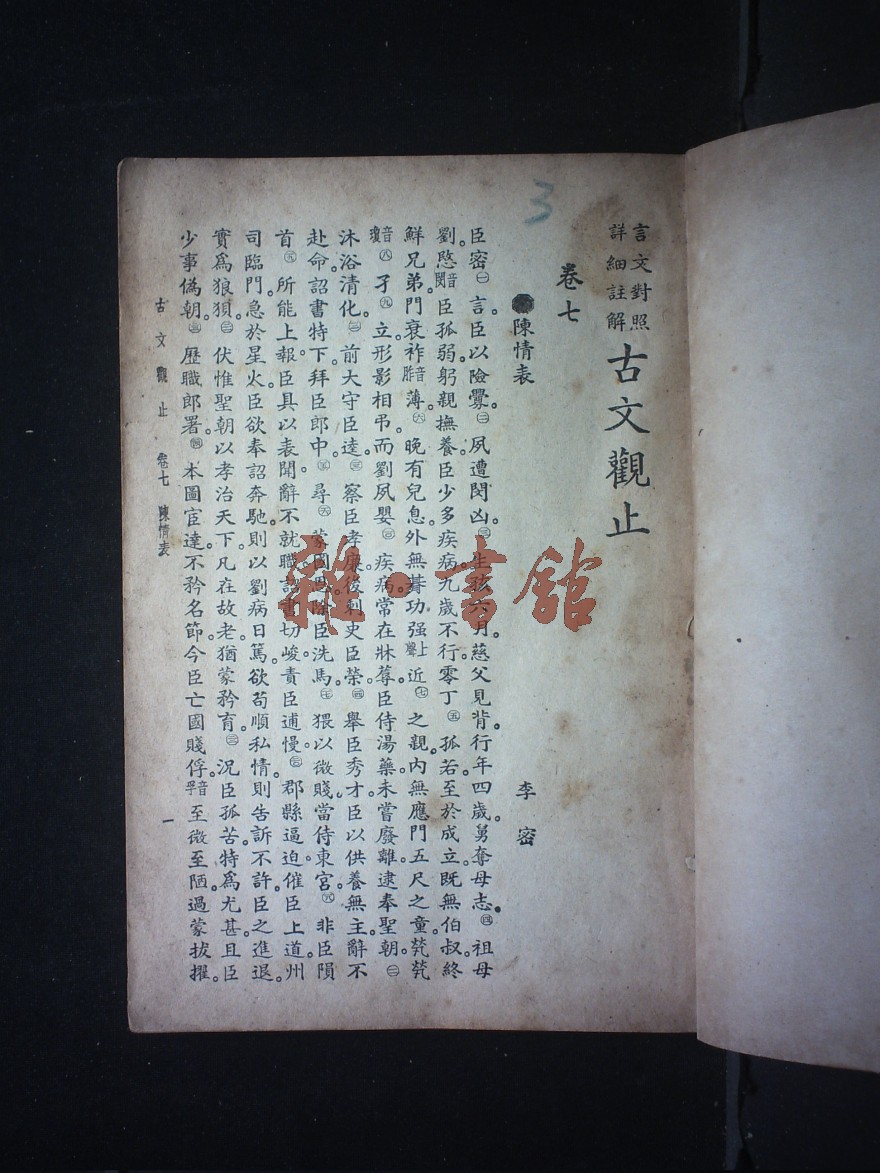 3
言文對照
詳細註解
古文觀止
卷七
陳情表
李密
臣密㊀言。臣以險釁。㊁夙遭閔凶。㊂生孩六月。慈父見背。行年四歲。舅奪母志。㊃祖母
劉愍音閔臣孤弱。躬親撫養。臣少多疾病。九歲不行。零丁㊄孤若。至於成立。既無伯叔。終
鮮兄弟。門衰祚音胙薄。㊅晚有兒息。外無朞功强上聲近㊆之親。內無應門五尺之童。煢煢
音瓊㊇孑㊈立。形影相弔。而劉夙嬰㊉疾病。常在牀蓐。臣侍湯藥。未嘗廢離。逮奉聖朝。
沐浴清化。前大守臣逵。察臣孝廉。後刺史臣榮。舉臣秀才。臣以供養無主。辭不
赴命。詔書特下。拜臣郎中。尋蒙國恩。除臣洗馬。猥以微賤。當侍東宮。非臣隕
首所能上報。臣具以表聞。辭不就職。詔書切峻。責臣逋慢。郡縣逼迫。催臣上道。州
司臨門。急於星火。臣欲奉詔奔馳。則以劉病日篤。欲苟順私情。則告訴不許。臣之進退。
實爲狼狽。伏惟聖朝以孝治天下。凡在故老。猶蒙矜育。況臣孤苦。特爲尤甚。且臣
少事僞朝。歷職郎署。本圖宦達。不矜名節。今臣亡國賤俘。音孚至微至陋。過蒙拔擢。
古文觀止 卷七 陳情表 一
雜·書館